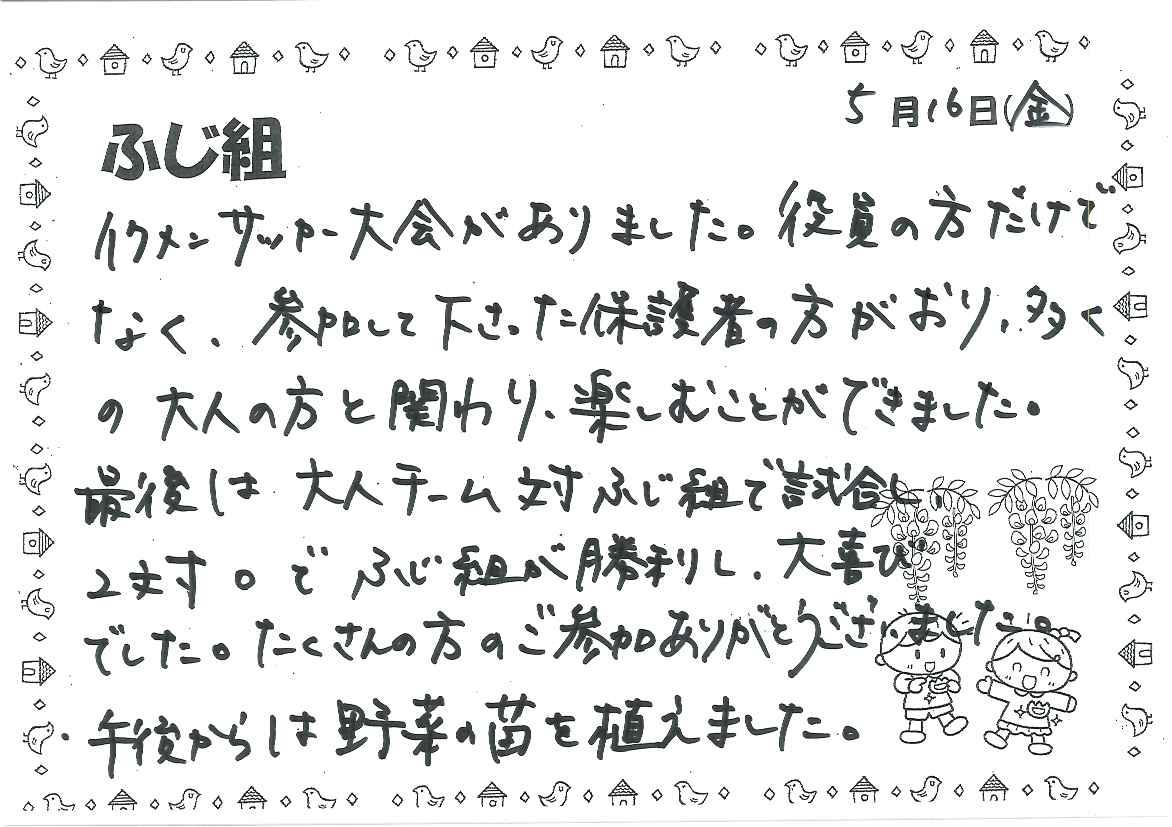 5月16日(金)
ふじ組
イクメンサッカー大会がありました。役員の方だけで
なく、参加して下さった保護者の方がおり、多く
の大人の方と関わり、楽しむことができました。
最後は大人チーム対ふじ組で試合し、
2対0でふじ組が勝利し、大喜び
でした。たくさんの方のご参加ありがとうございました。
・午後からは野菜の苗を植えました。